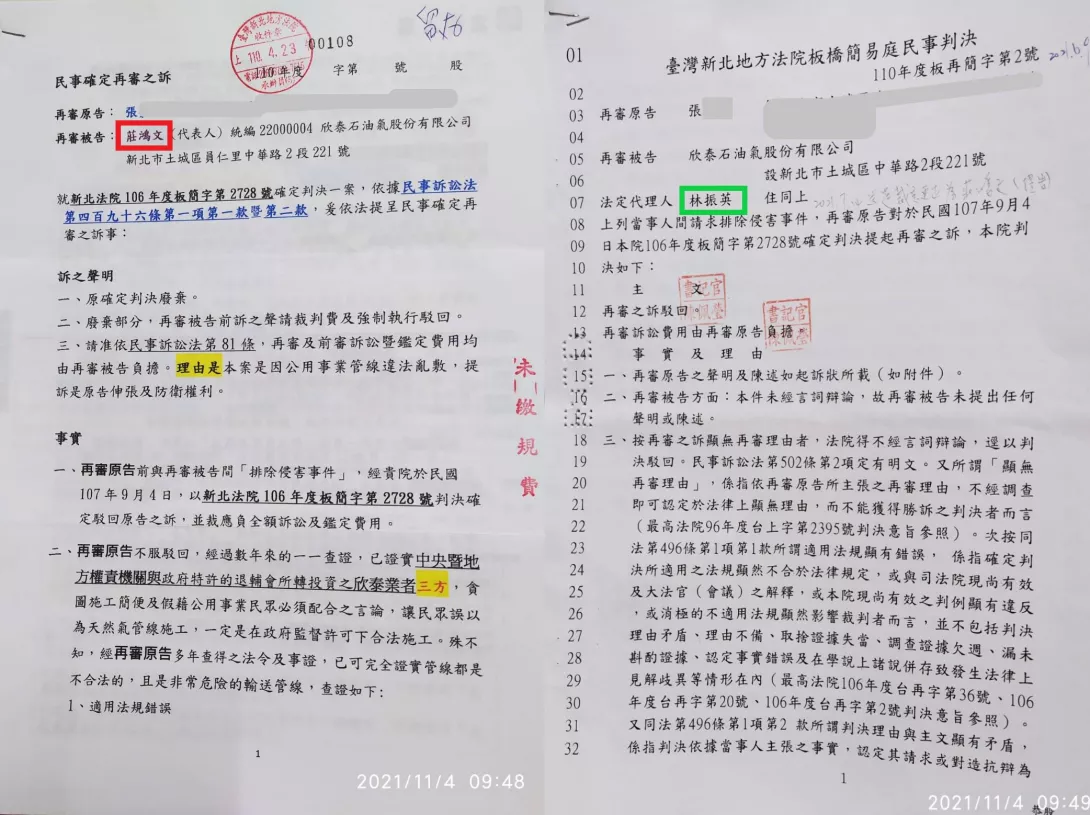 臺灣新北地方法院
收件章
上 110.4.23
00108
110年度 字第 號 股
民事確定再審之訴
再審原告：張
再審被告：莊鴻文（代表人）統編 22000004 欣泰石油氣股份有限公司
新北市土城區員仁里中華路2段221號
就新北法院106年度板簡字第2728號確定判決一案，依據民事訴訟法
第四百九十六條第一項第一款暨第二款，爰依法提呈民事確定再
審之訴事：
訴之聲明
一、原確定判決廢棄。
二、廢棄部分，再審被告前訴之聲請裁判費及強制執行駁回。
三、請准依民事訴訟法第81條，再審及前審訴訟暨鑑定費用均
由再審被告負擔。理由是本案是因公用事業管線違法亂敷，提
訴是原告伸張及防衛權利。
未繳規費
事實
一、再審原告前與再審被告間「排除侵害事件」，經貴院於民國
107年9月4日，以新北法院106年度板簡字第2728號判決確
定駁回原告之訴，並裁應負全額訴訟及鑑定費用。
二、再審原告不服駁回，經過數年來的一一查證，已證實中央暨地
方權責機關與政府特許的退輔會所轉投資之欣泰業者三方，貪
圖施工簡便及假藉公用事業民眾必須配合之言論，讓民眾誤以
為天然氣管線施工，一定是在政府監督許可下合法施工。殊不
知，經再審原告多年查得之法令及事證，已可完全證實管線都是
不合法的，且是非常危險的輸送管線，查證如下：
1、適用法規錯誤
1
2021/11/4 09:48
01 臺灣新北地方法院板橋簡易庭民事判決
02 110年度板再簡字第2號
03 再審原告 張
04
05 再審被告 欣泰石油氣股份有限公司
06 設新北市土城區中華路2段221號
07 法定代理人 林振英 住同上
08 上列當事人間請求排除侵害事件，再審原告對於民國107年9月4
09 日本院106年度板簡字第2728號確定判決提起再審之訴，本院判
10 決如下：
11 主 文
12 再審之訴駁回。
13 再審訴訟費用由再審原告負擔。
書記官
書記官
14 事實及理由
15 一、再審原告之聲明及陳述如起訴狀所載（如附件）。
16 二、再審被告方面：本件未經言詞辯論，故再審被告未提出任何
17 聲明或陳述。
18 三、按再審之訴顯無再審理由者，法院得不經言詞辯論，逕以判
19 決駁回。民事訴訟法第502條第2項定有明文。又所謂「顯無
20 再審理由」，係指依再審原告所主張之再審理由，不經調查
21 即可認定於法律上顯無理由，而不能獲得勝訴之判決者而言
22 （最高法院96年度台上字第2395號判決意旨參照）。次按同
23 法第496條第1項第1款所謂適用法規顯有錯誤， 係指確定判
24 決所適用之法規顯然不合於法律規定，或與司法院現尚有效
25 及大法官（會議）之解釋，或本院現尚有效之判例顯有違反
26 ，或消極的不適用法規顯然影響裁判者而言，並不包括判決
27 理由矛盾、理由不備、取捨證據失當、調查證據欠週、漏未
28 斟酌證據、認定事實錯誤及在學說上諸說併存致發生法律上
29 見解歧異等情形在內（最高法院106年度台再字第36號、106
30 年度台再字第20號、106年度台再字第2號判決意旨參照）。
31 又同法第496條第1項第2 款所謂判決理由與主文顯有矛盾，
32 係指判決依據當事人主張之事實，認定其請求或對造抗辯為
1
2021/11/4 09:49
恭股